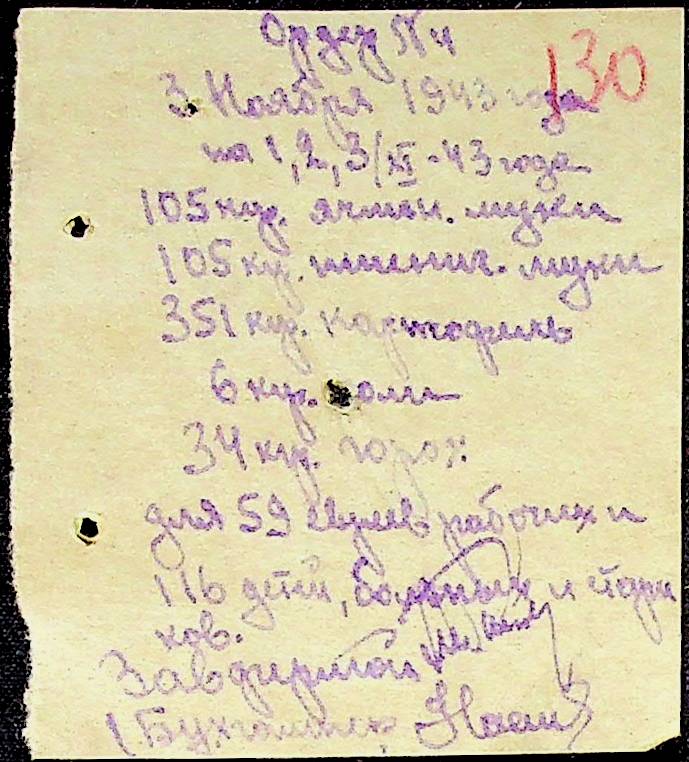 Ордер № 4
130
3 Ноября 1943 года
на 1, 2, 3/XI - 43 года
105 кгр. ячмен. муки
105 кгр. пшенич. муки
351 кгр. картофель
6 кгр. соли
34 кгр. горох
для 59 рабочих и
116 детей, больных и стари
ков.
Завфермой
Бухгалтер